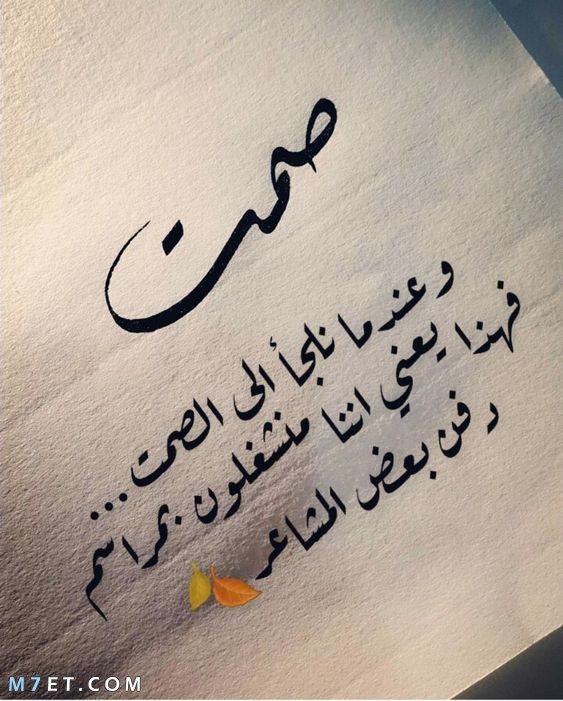 صمت
وعندما نلجأ ألى الصمت...
فهذا يعني اننا منشغلون بمراسم
دفن بعض المشاعر
M7ET.COM